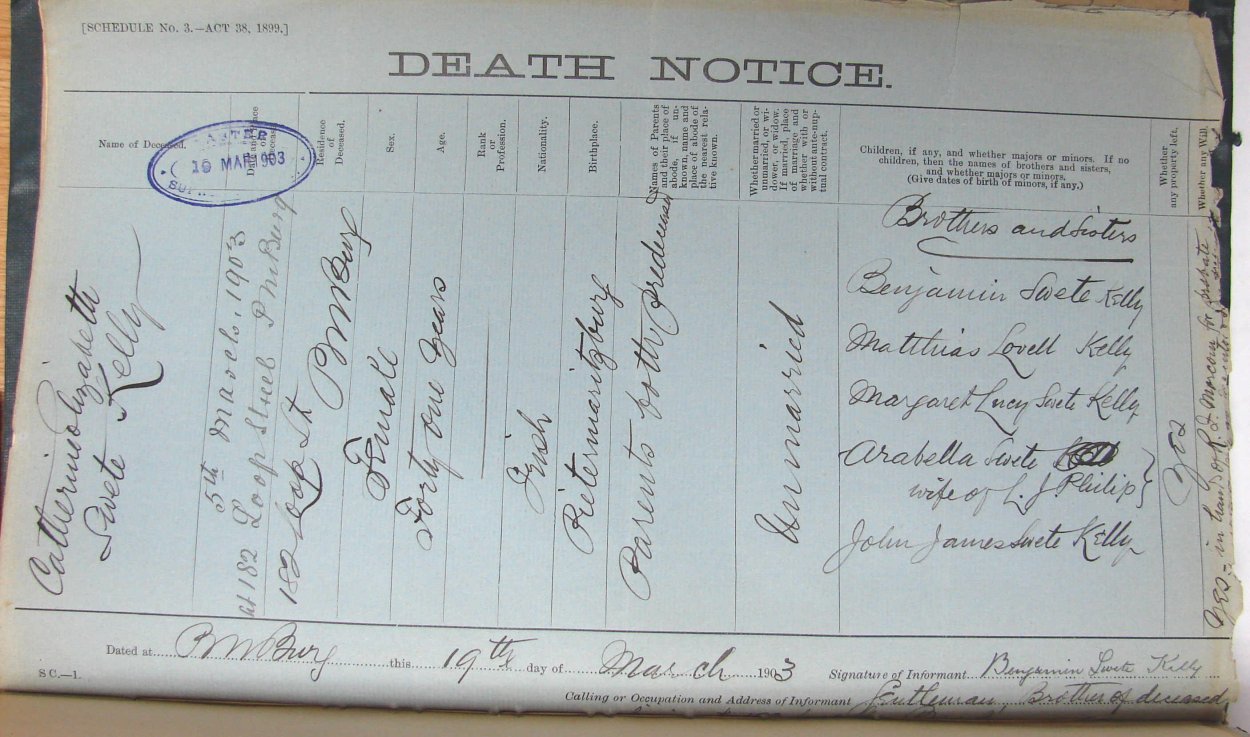 [SCHEDULE No. 3.—ACT 38, 1899.]
DEATH NOTICE.
Name of Deceased.
19 MAR 1903
Residence
or
Deceased.
Sex.
Age.
Rank
or
Profession.
Nationality.
Birthplace.
Names of Parents
and their place of
abode, if un-
known, name and
place of abode of
the nearest rela-
tive known.
Whether married or
unmarried, or wi-
dower, or widow.
If married, place
of marriage and
whether with or
without ante-nup-
tual contract.
Children, if any, and whether majors or minors. If no
children, then the names of brothers and sisters,
and whether majors or minors,
(Give dates of birth of minors, if any.)
Whether
any property left.
Whether any Will.
Catherine Elizabeth
Swete Kelly
5th March, 1903
at 182 Loop Street PMBurg
182 Loop St PMBurg
Female
Forty one years
Irish
Pietermaritzburg
Parents both predeceased
Unmarried
Brothers and Sisters
Benjamin Swete Kelly
Matthias Lovell Kelly
Margaret Lucy Swete Kelly
Arabella Swete
wife of L. J Philip
John James Swete Kelly
Yes
Yes - in hands of for probate
Dated at PMBurg this 19th day of March 1903
Signature of Informant Benjamin Swete Kelly
S C.—1.
Calling or Occupation and Address of Informant Gentleman, Brother of deceased